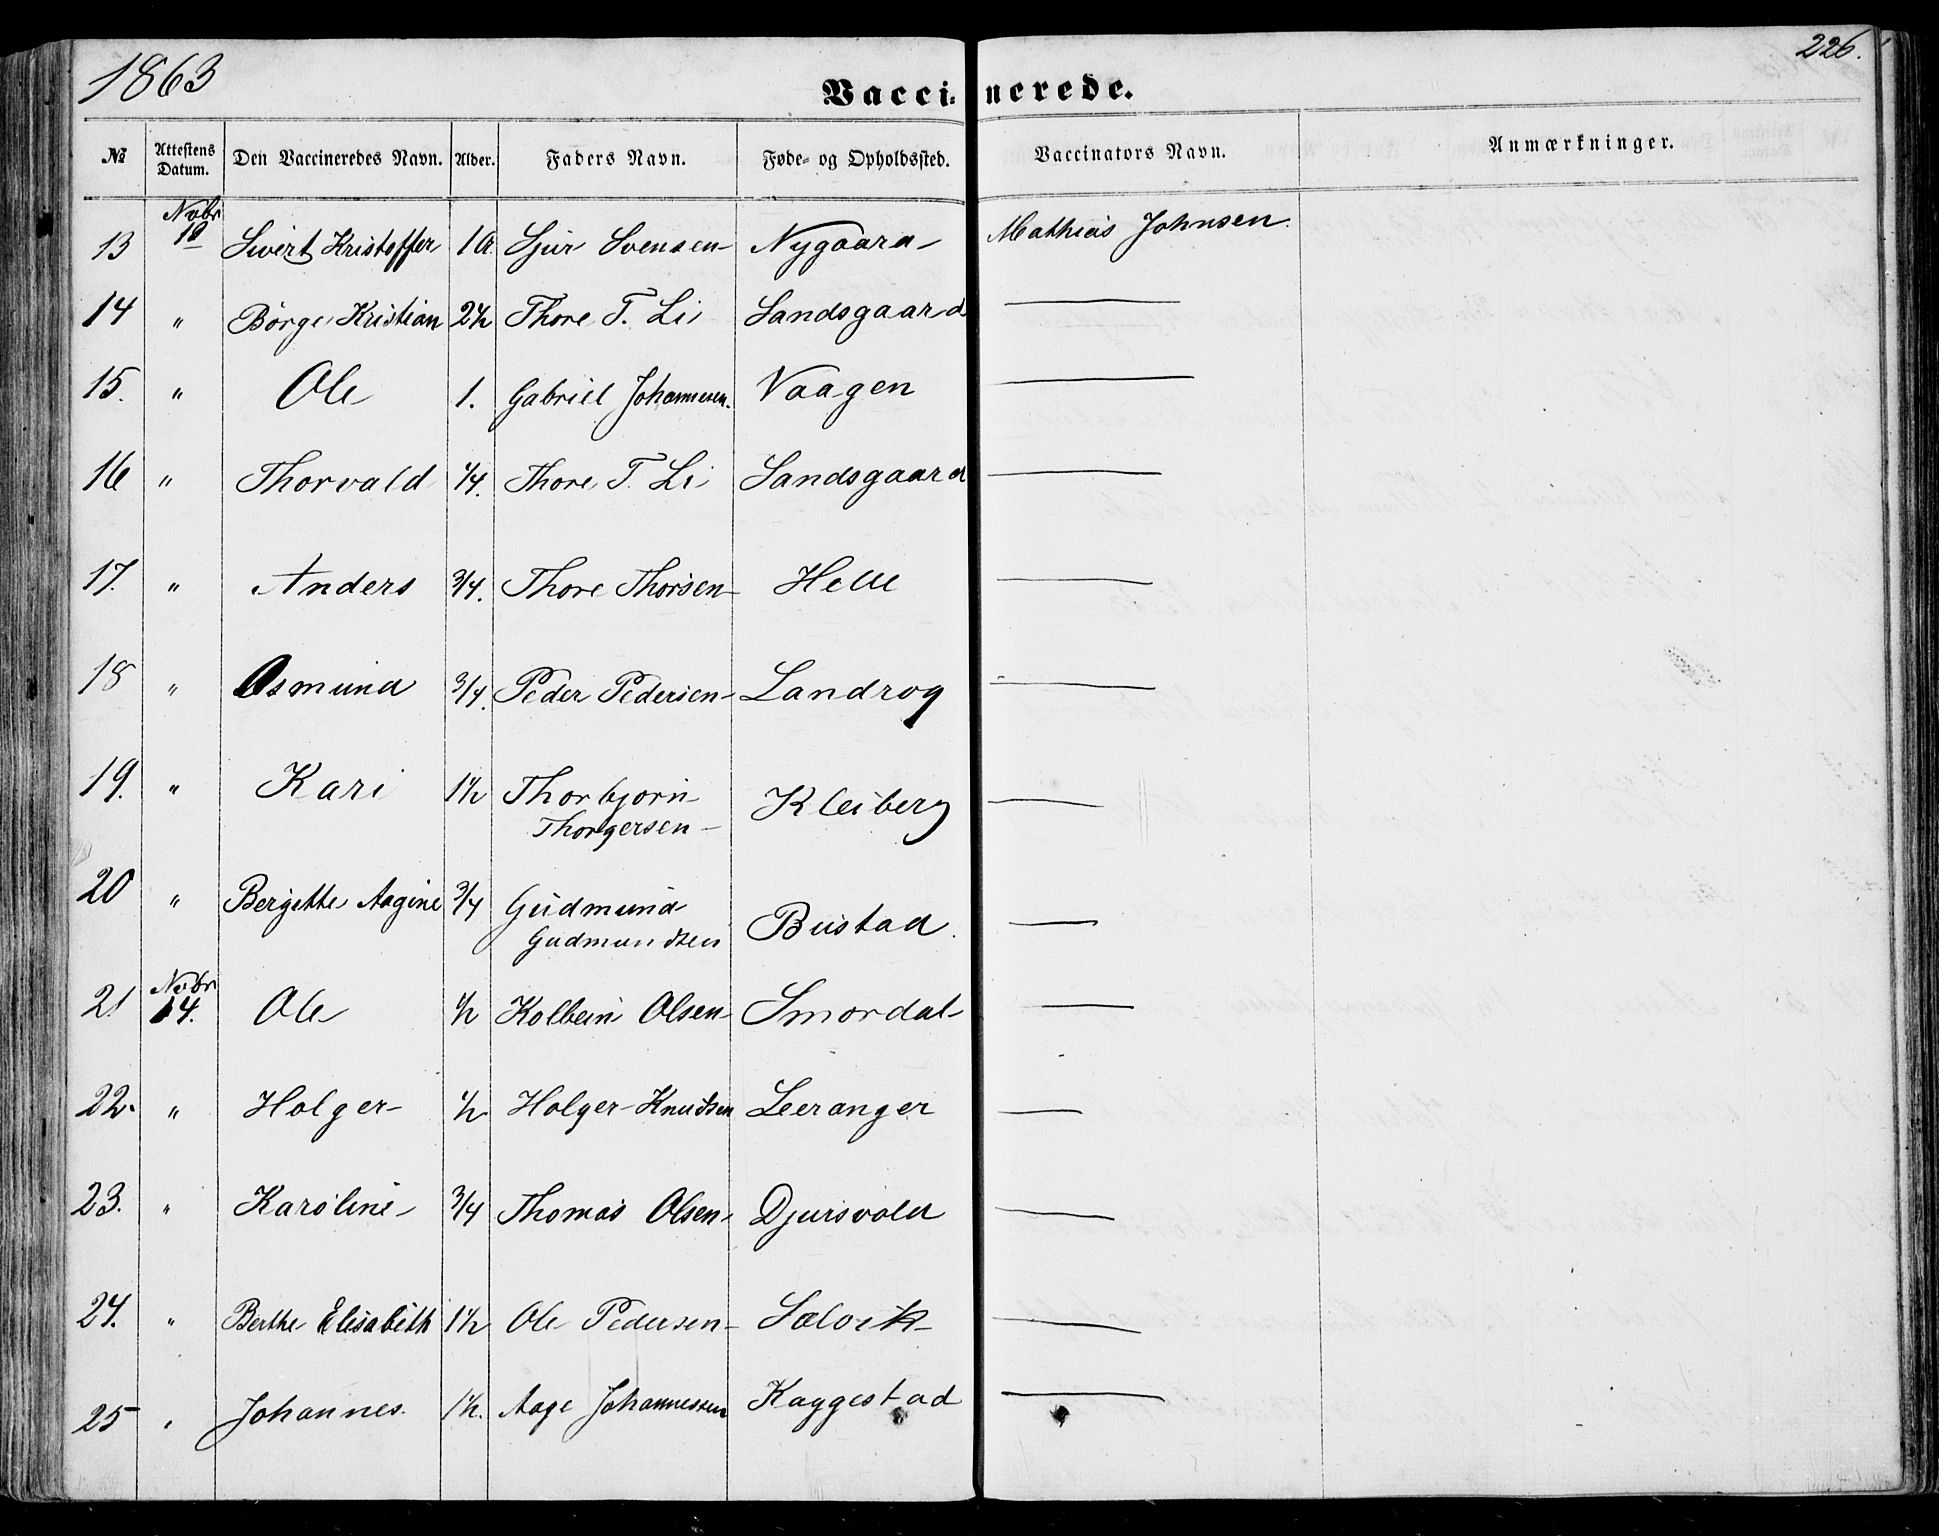 1863
226.
Vaccinerede.
№ | Attestens Datum. | Den Vaccineredes Navn. | Alder. | Faders Navn. | Føde- og Opholdssted. | Vaccinators Navn. | Anmærkninger.
13 | Novbr 10 | Sivert Kristoffer | 1 | Sjur Svensen | Nygaard | Mathias Johnsen.
14 | " | Börge Kristian | 2½ | Thore T. Li | Sandsgaard | —
15. | " | Ole | 1. | Gabriel Johannesen. | Vaagen | —
16 | " | Thorvald | 1/4. | Thore T. Li | Sandsgaard | —
17. | " | Anders | 3/4. | Thore Thorsen | Helle | —
18 | " | Osmund | 3/4. | Peder Pedersen | Landrog | —
19. | " | Kari | 1½ | Thorbjorn Thorgersen | Kleiberg | —
20 | " | Bergitte Aagine | 3/4 | Gudmund Gudmundsen | Bustad. | —
21 | Novbr 14. | Ole | ½ | Kolbein Olsen | Smordal | —
22. | " | Holger | ½ | Holger Knudsen | Leeranger | —
23. | " | Karoline | 3/4 | Thomas Olsen | Djursvold | —
24. | " | Berthe Elisabeth | 1½ | Ole Pedersen | Sælvik | —
25 | " | Johannes. | 1½. | Aage Johannessen | Kaggestad | —